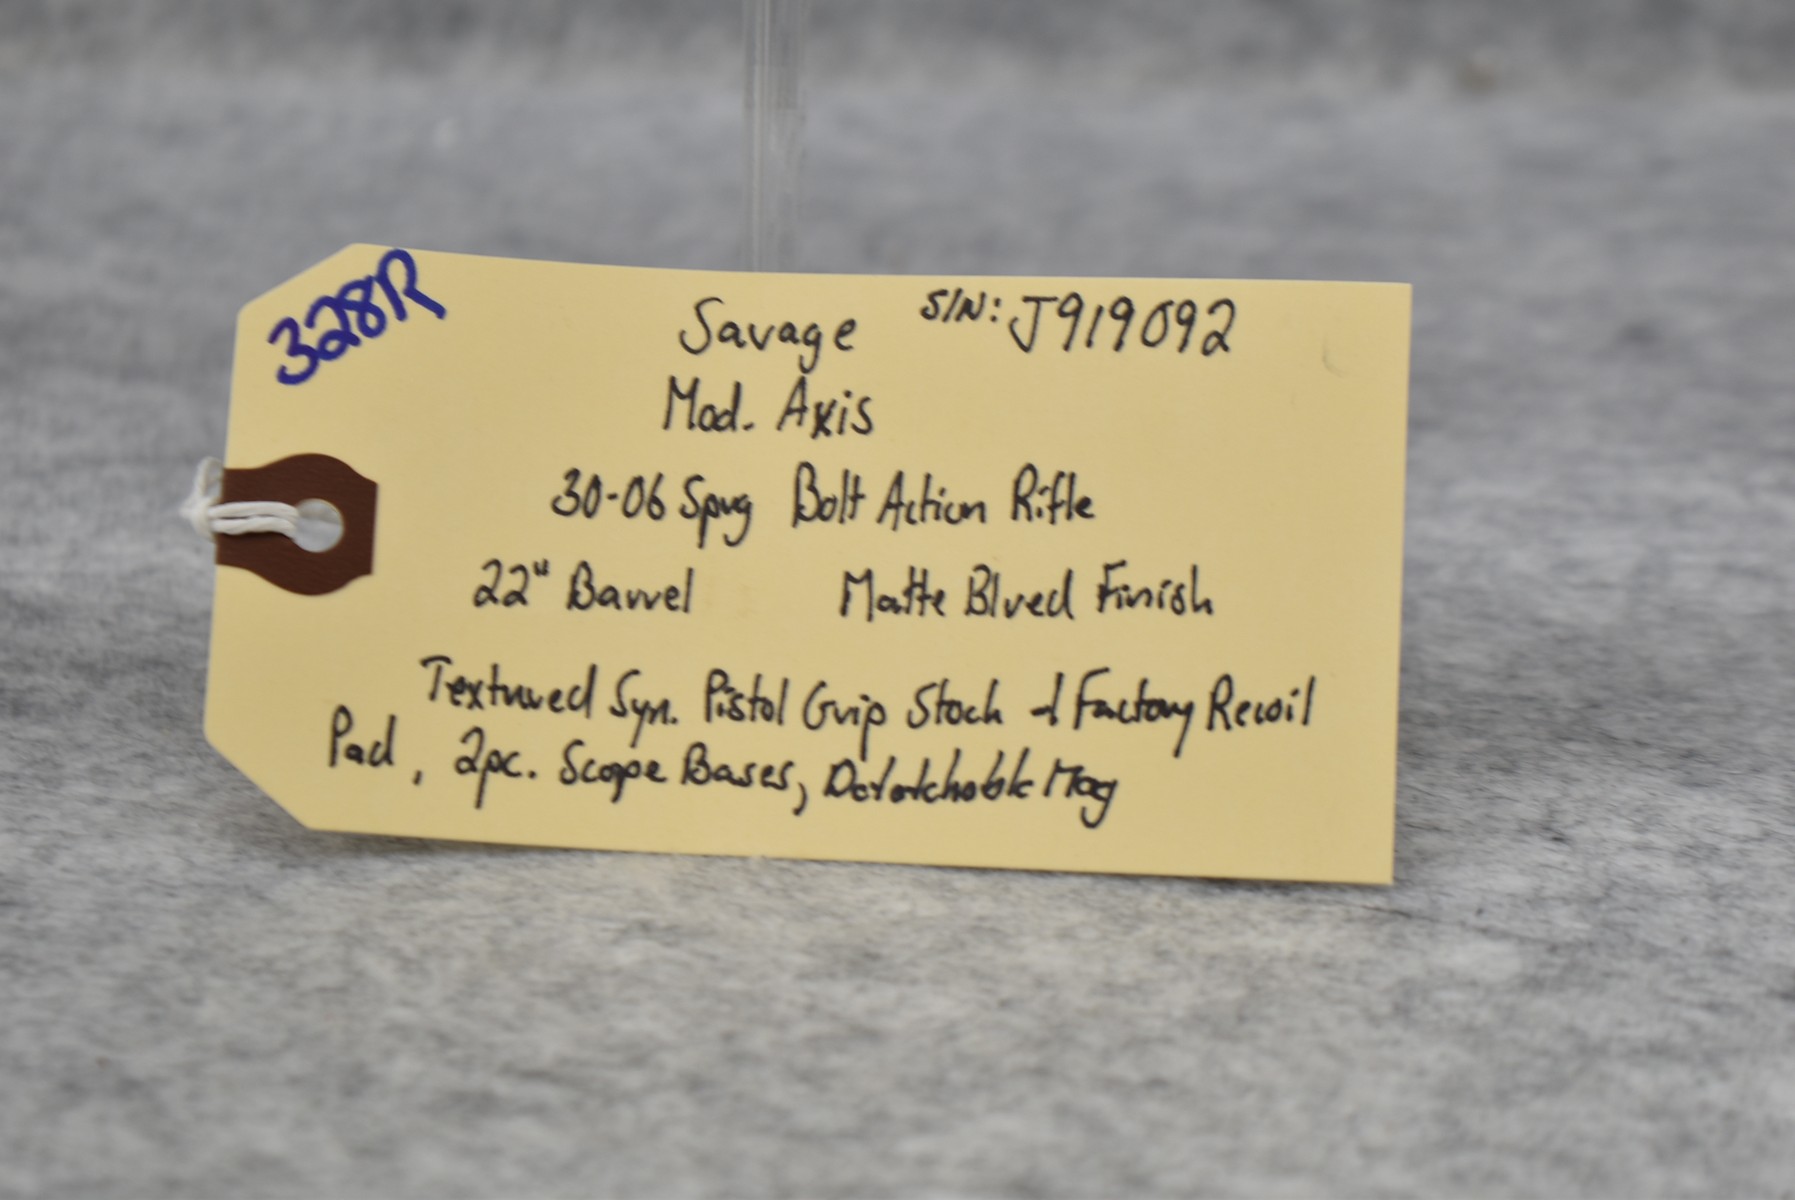 328R
Savage S/N: J919092
Mod. Axis
30-06 Sprg Bolt Action Rifle
22" Barrel Matte Blued Finish
Textured Syn. Pistol Grip Stock & Factory Recoil
Pad, 2pc. Scope Bases, Detatchable Mag